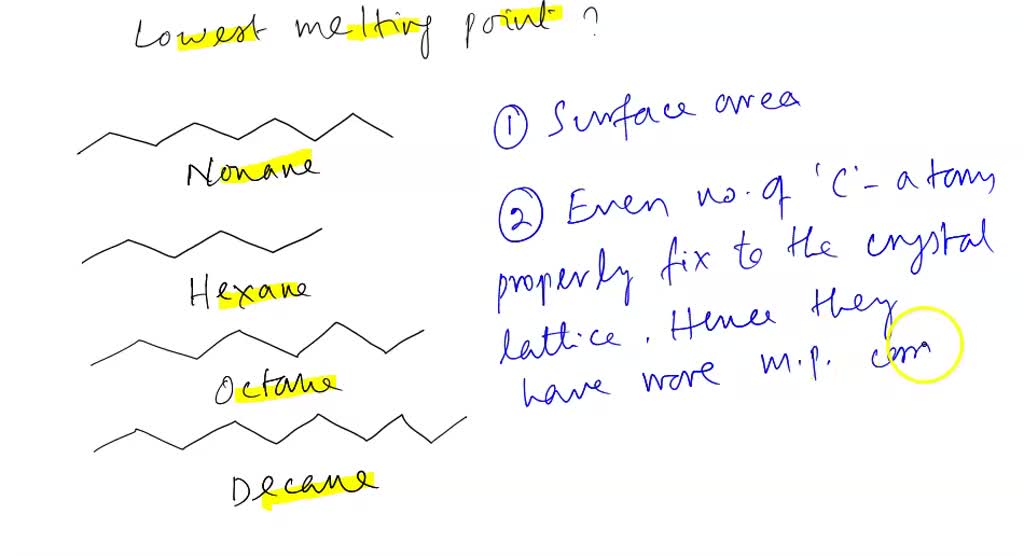 Lowest melting point ?
Nonane
Hexane
Octane
Decane
① Surface area
② Even no. of 'C' - atoms
properly fix to the crystal
lattice. Hence they
have more m.p. com